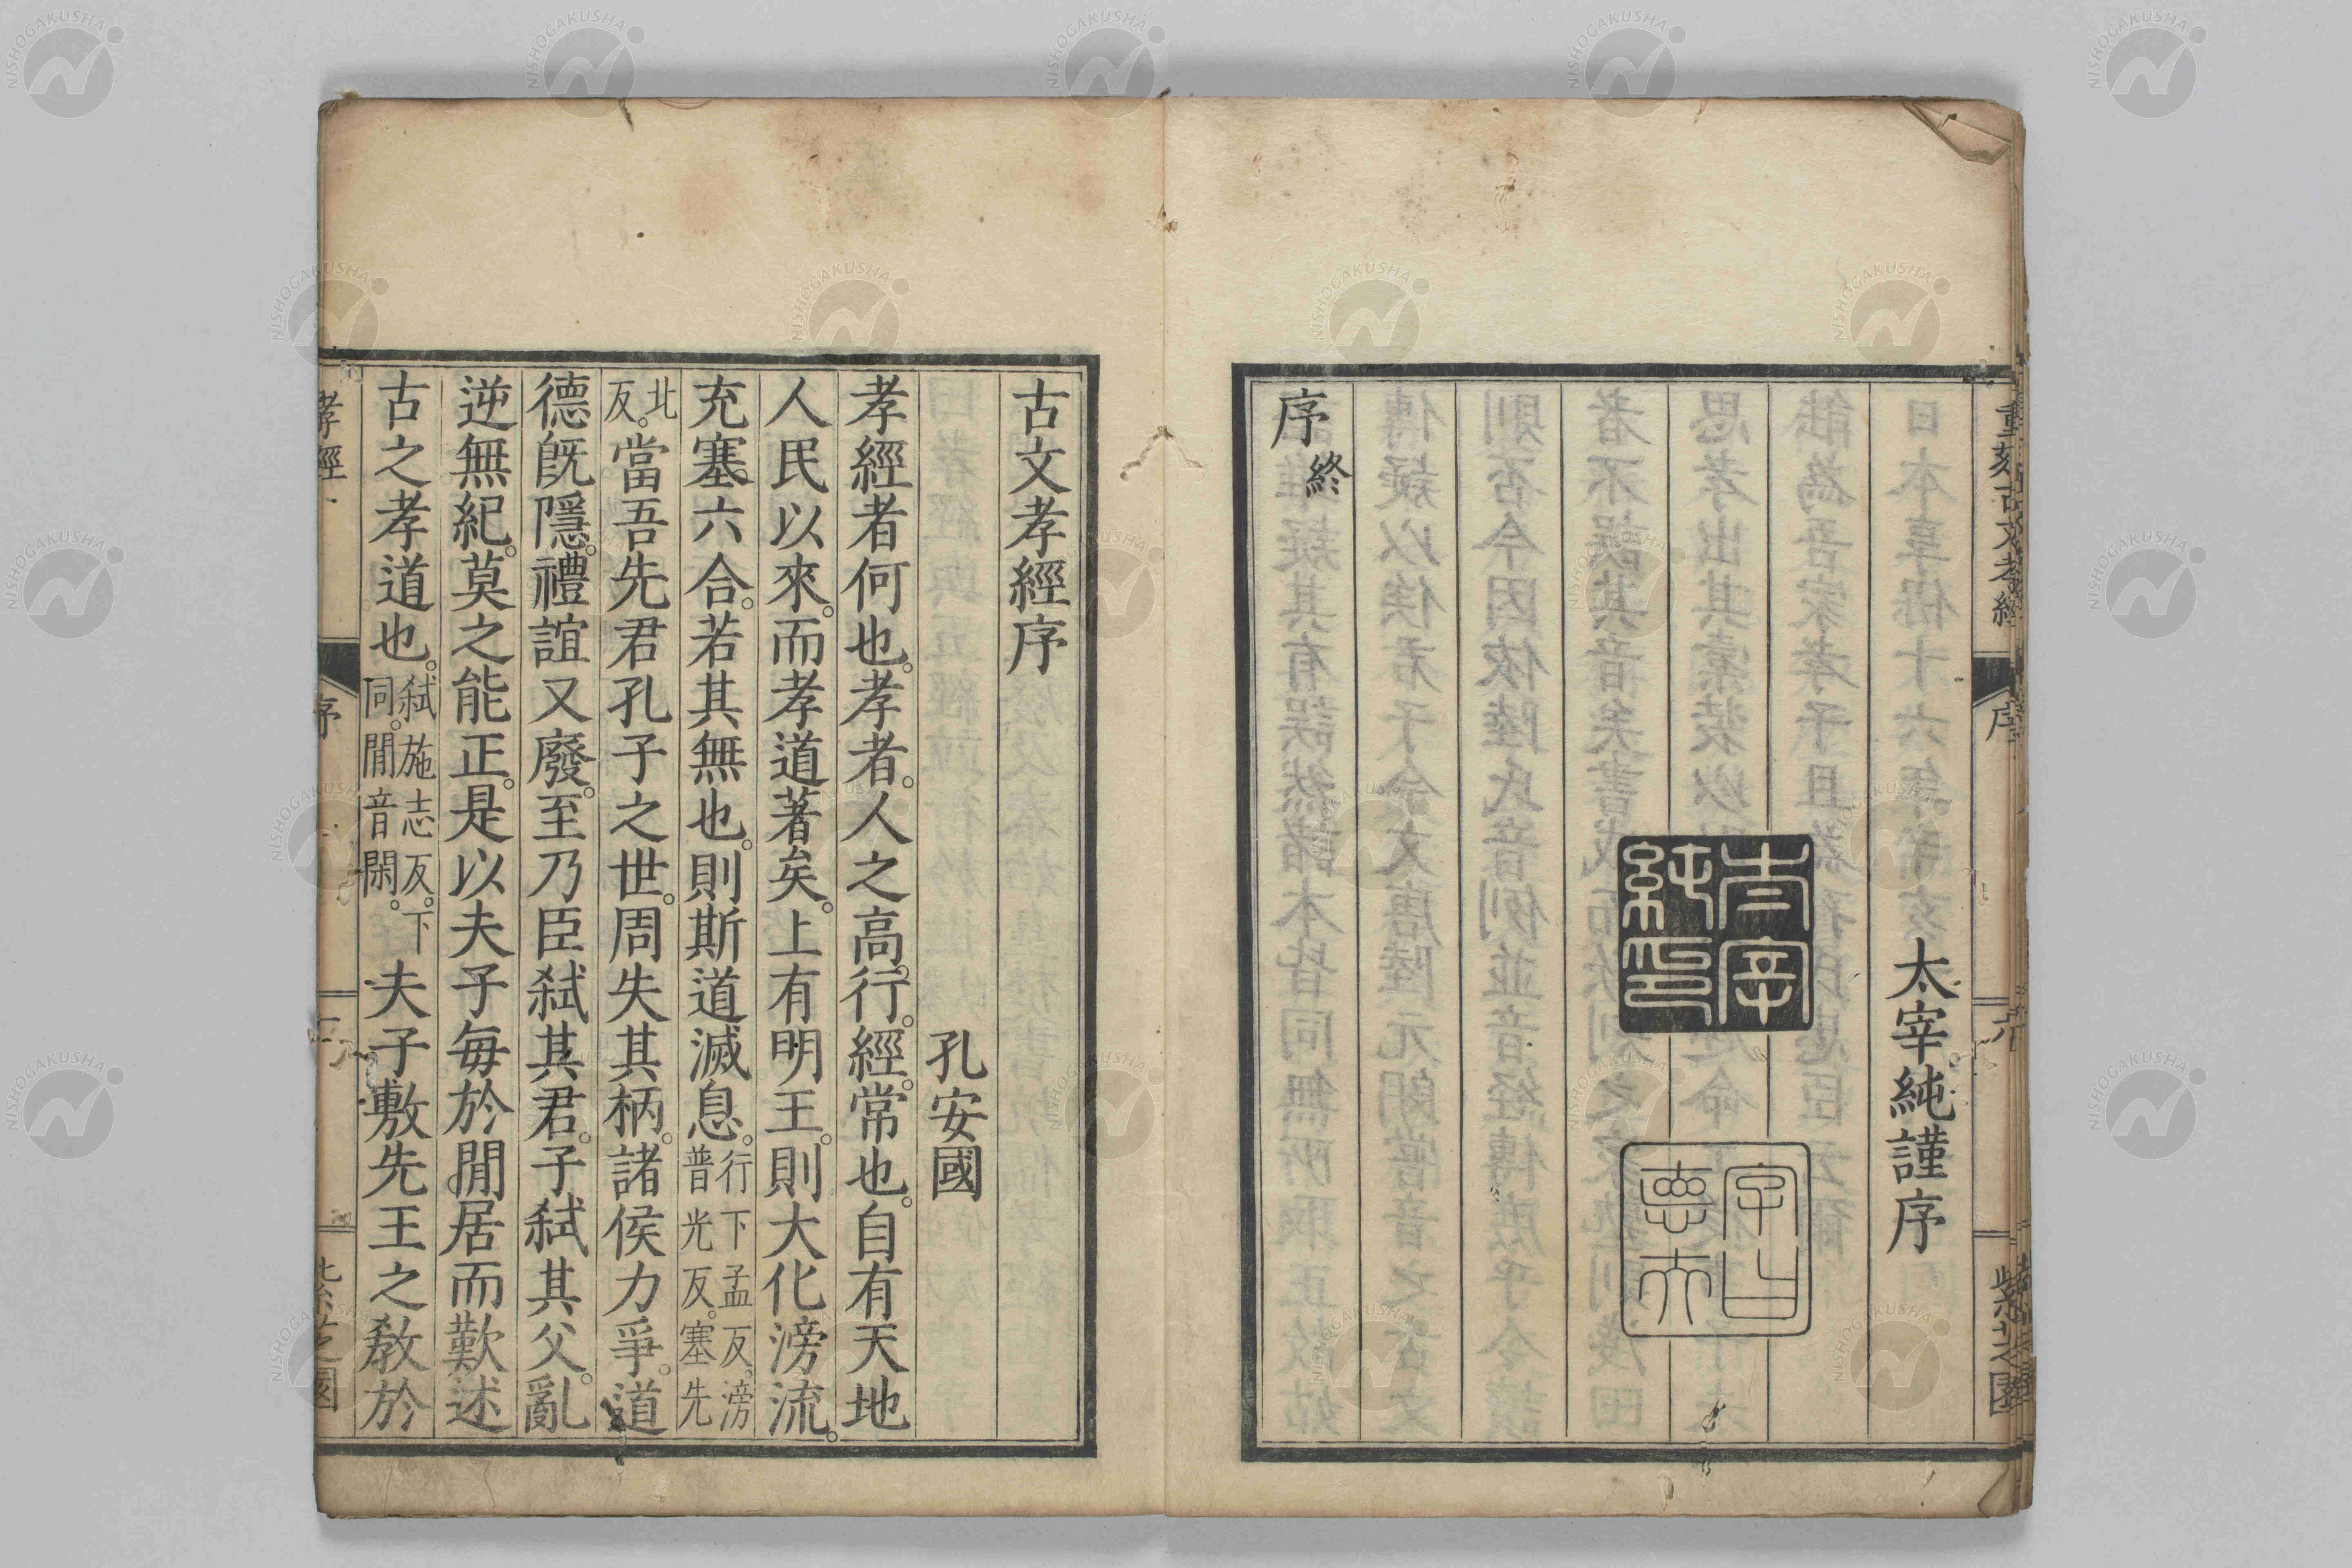 重刻古文孝經
序
紫芝園
太宰純謹序
太宰
純印
字曰
德夫
序終
古文孝經序
孔安國
孝經者何也。孝者。人之高行。經。常也。自有天地
人民以來。而孝道著矣。上有明王。則大化滂流。
充塞六合。若其無也。則斯道滅息。行下孟反。滂普光反。塞先
北反。當吾先君孔子之世。周失其柄。諸侯力爭。道
德旣隱。禮誼又廢。至乃臣弑其君。子弑其父。亂
逆無紀。莫之能正。是以夫子每於閒居而歎述
古之孝道也。弑施志反。下同。閒音閑。夫子敷先王之敎於
孝經
序
紫芝園
NISHOGAKUSHA